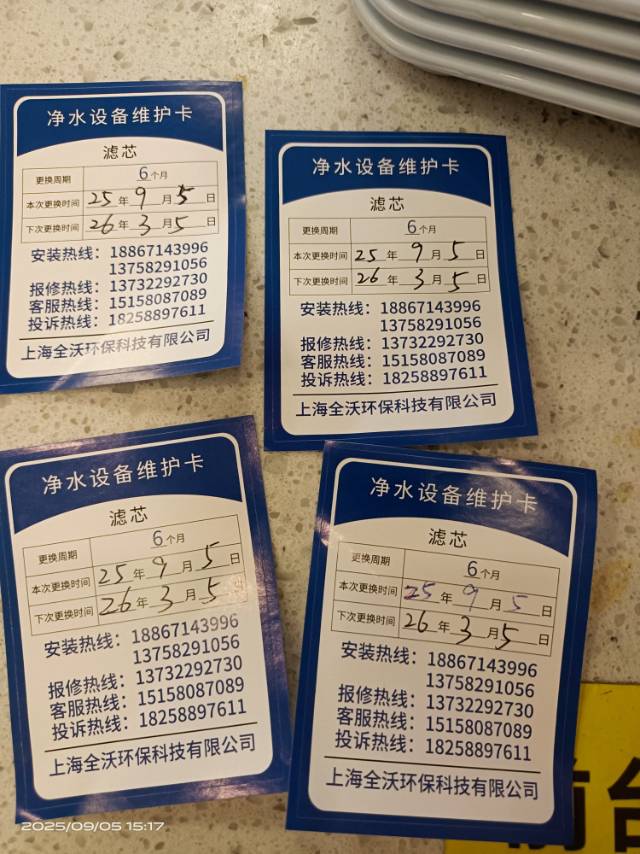 净水设备维护卡
滤芯
更换周期 6个月
本次更换时间 25年9月5日
下次更换时间 26年3月5日
安装热线：18867143996
13758291056
报修热线：13732292730
客服热线：15158087089
投诉热线：18258897611
上海全沃环保科技有限公司
净水设备维护卡
滤芯
更换周期 6个月
本次更换时间 25年9月5日
下次更换时间 26年3月5日
安装热线：18867143996
13758291056
报修热线：13732292730
客服热线：15158087089
投诉热线：18258897611
上海全沃环保科技有限公司
净水设备维护卡
滤芯
更换周期 6个月
本次更换时间 25年9月5日
下次更换时间 26年3月5日
安装热线：18867143996
13758291056
报修热线：13732292730
客服热线：15158087089
投诉热线：18258897611
上海全沃环保科技有限公司
净水设备维护卡
滤芯
更换周期 6个月
本次更换时间 25年9月5日
下次更换时间 26年3月5日
安装热线：18867143996
13758291056
报修热线：13732292730
客服热线：15158087089
投诉热线：18258897611
上海全沃环保科技有限公司
前台
2025/09/05 15:17